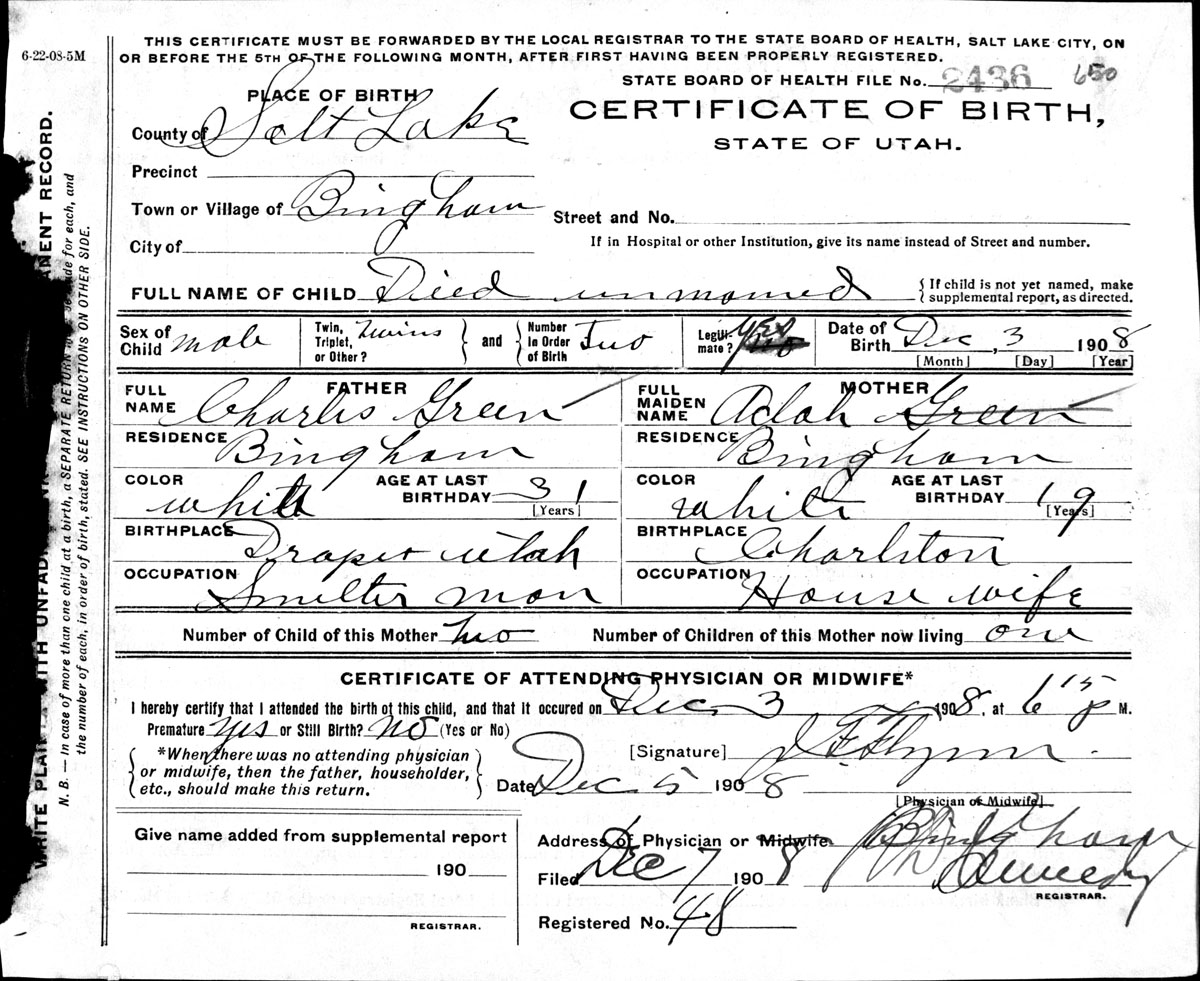 6-22-08-5M
THIS CERTIFICATE MUST BE FORWARDED BY THE LOCAL REGISTRAR TO THE STATE BOARD OF HEALTH, SALT LAKE CITY, ON
OR BEFORE THE 5TH OF THE FOLLOWING MONTH, AFTER FIRST HAVING BEEN PROPERLY REGISTERED.
STATE BOARD OF HEALTH FILE No. 2436 650
PLACE OF BIRTH
CERTIFICATE OF BIRTH,
STATE OF UTAH.
County of Salt Lake
Precinct
Town or Village of Bingham
Street and No.
City of
If in Hospital or other Institution, give its name instead of Street and number.
FULL NAME OF CHILD Died unnamed
{ If child is not yet named, make
supplemental report, as directed.
Sex of Child male
Twin, Triplet, or Other? Twins
and
Number In Order of Birth Two
Legiti- mate? yes
Date of Birth Dec, 3 1908
[Month] [Day] [Year]
FATHER
FULL NAME Charles Green
RESIDENCE Bingham
COLOR white
AGE AT LAST BIRTHDAY 31
[Years]
BIRTHPLACE Draper Utah
OCCUPATION Smelter man
MOTHER
FULL MAIDEN NAME Adah Green
RESIDENCE Bingham
COLOR white
AGE AT LAST BIRTHDAY 19
[Years]
BIRTHPLACE Charlston
OCCUPATION House wife
Number of Child of this Mother Two
Number of Children of this Mother now living one
CERTIFICATE OF ATTENDING PHYSICIAN OR MIDWIFE*
I hereby certify that I attended the birth of this child, and that it occured on Dec 3 1908, at 6 15 p M.
Premature yes or Still Birth? no (Yes or No)
[Signature] Flynn
*When there was no attending physician
or midwife, then the father, householder,
etc., should make this return.
Date Dec 5 1908
[Physician or Midwife]
Give name added from supplemental report
190
REGISTRAR.
Address of Physician or Midwife Bingham
Filed Dec 7 1908
REGISTRAR.
Registered No. 48
N. B. — In case of more than one child at a birth, a SEPARATE RETURN must be made for each, and
the number of each, in order of birth, stated. SEE INSTRUCTIONS ON OTHER SIDE.